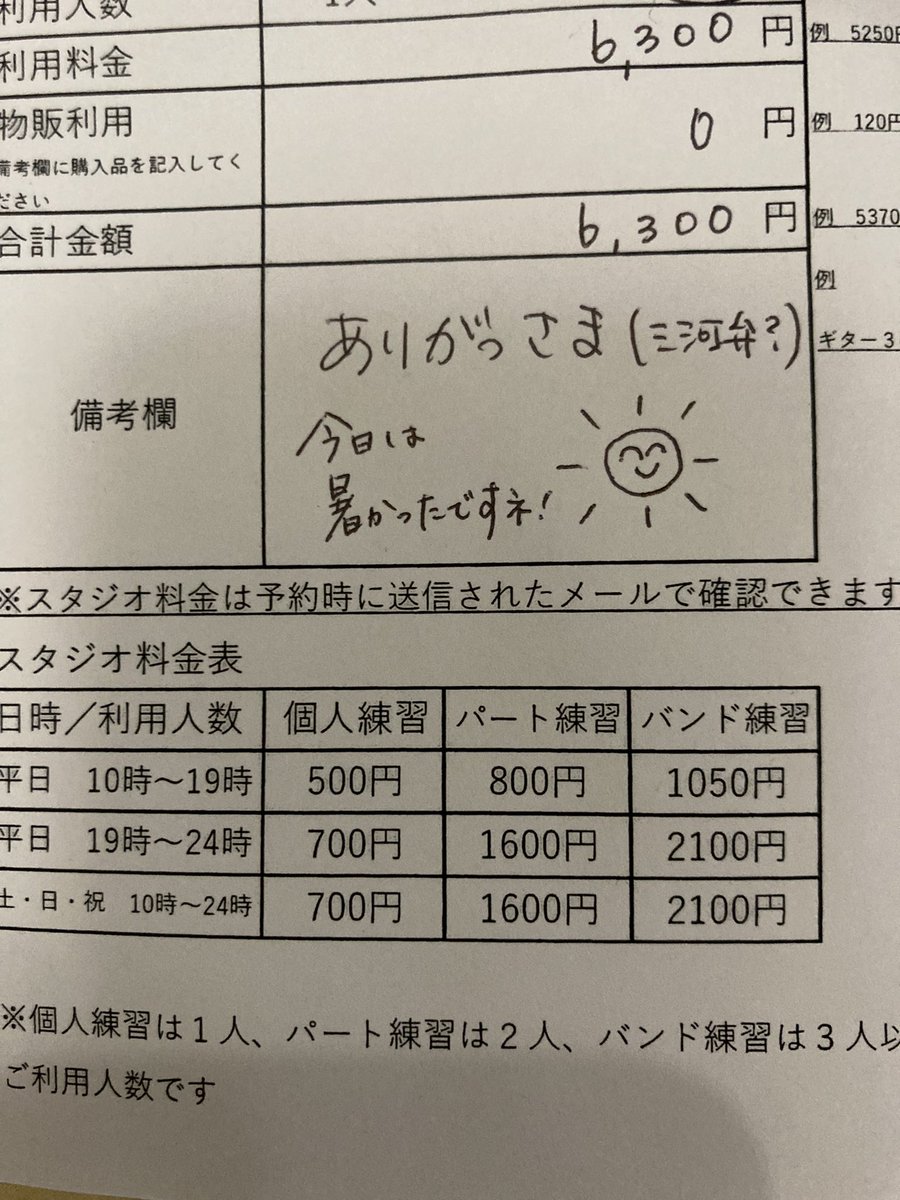 利用人数
利用料金 6,300 円 例 5250円
物販利用 0 円 例 120円
備考欄に購入品を記入してく
ださい
合計金額 6,300 円 例 5370
例
ギター3
備考欄
ありがっさま(三河弁?)
今日は
暑かったですネ!
※スタジオ料金は予約時に送信されたメールで確認できます
スタジオ料金表
日時／利用人数 個人練習 パート練習 バンド練習
平日 10時〜19時 500円 800円 1050円
平日 19時〜24時 700円 1600円 2100円
土・日・祝 10時〜24時 700円 1600円 2100円
※個人練習は1人、パート練習は2人、バンド練習は3人以
ご利用人数です